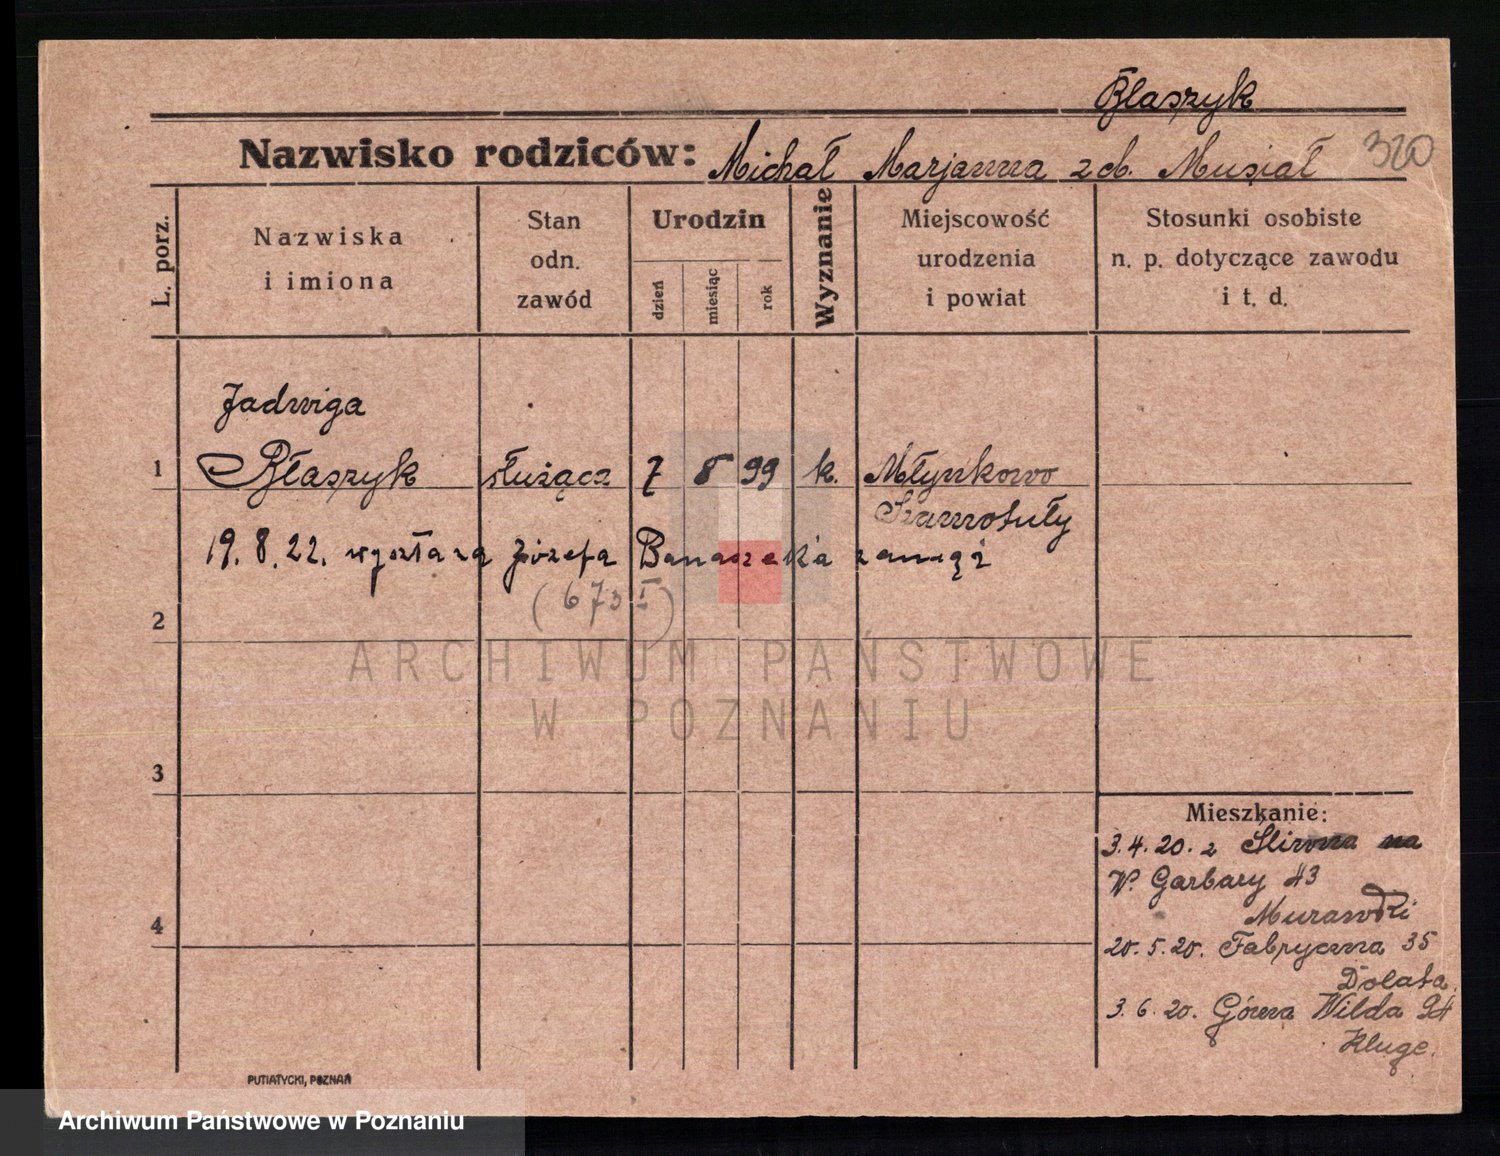 Błaszyk
Nazwisko rodziców: Michał Marjanna z d. Musiał 320
L. porz.
Nazwiska
i imiona
Stan
odn.
zawód
Urodzin
dzień
miesiąc
rok
Wyznanie
Miejscowość
urodzenia
i powiat
Stosunki osobiste
n. p. dotyczące zawodu
i t. d.
Jadwiga
1 Błaszyk służąca 7 8 99 k. Młynkowo
Szamotuły
19. 8. 22. wyszła za Józefa Banaszeka zamąż
(673 I)
2
ARCHIWUM PAŃSTWOWE
W POZNANIU
3
Mieszkanie:
3. 4. 20. z na
W. Garbary 43
Murawski
4
20. 5. 20. Fabryczna 35
Dolata
3. 6. 20. Górna Wilda 94
Kluge.
PUTIATYCKI, POZNAŃ
Archiwum Państwowe w Poznaniu